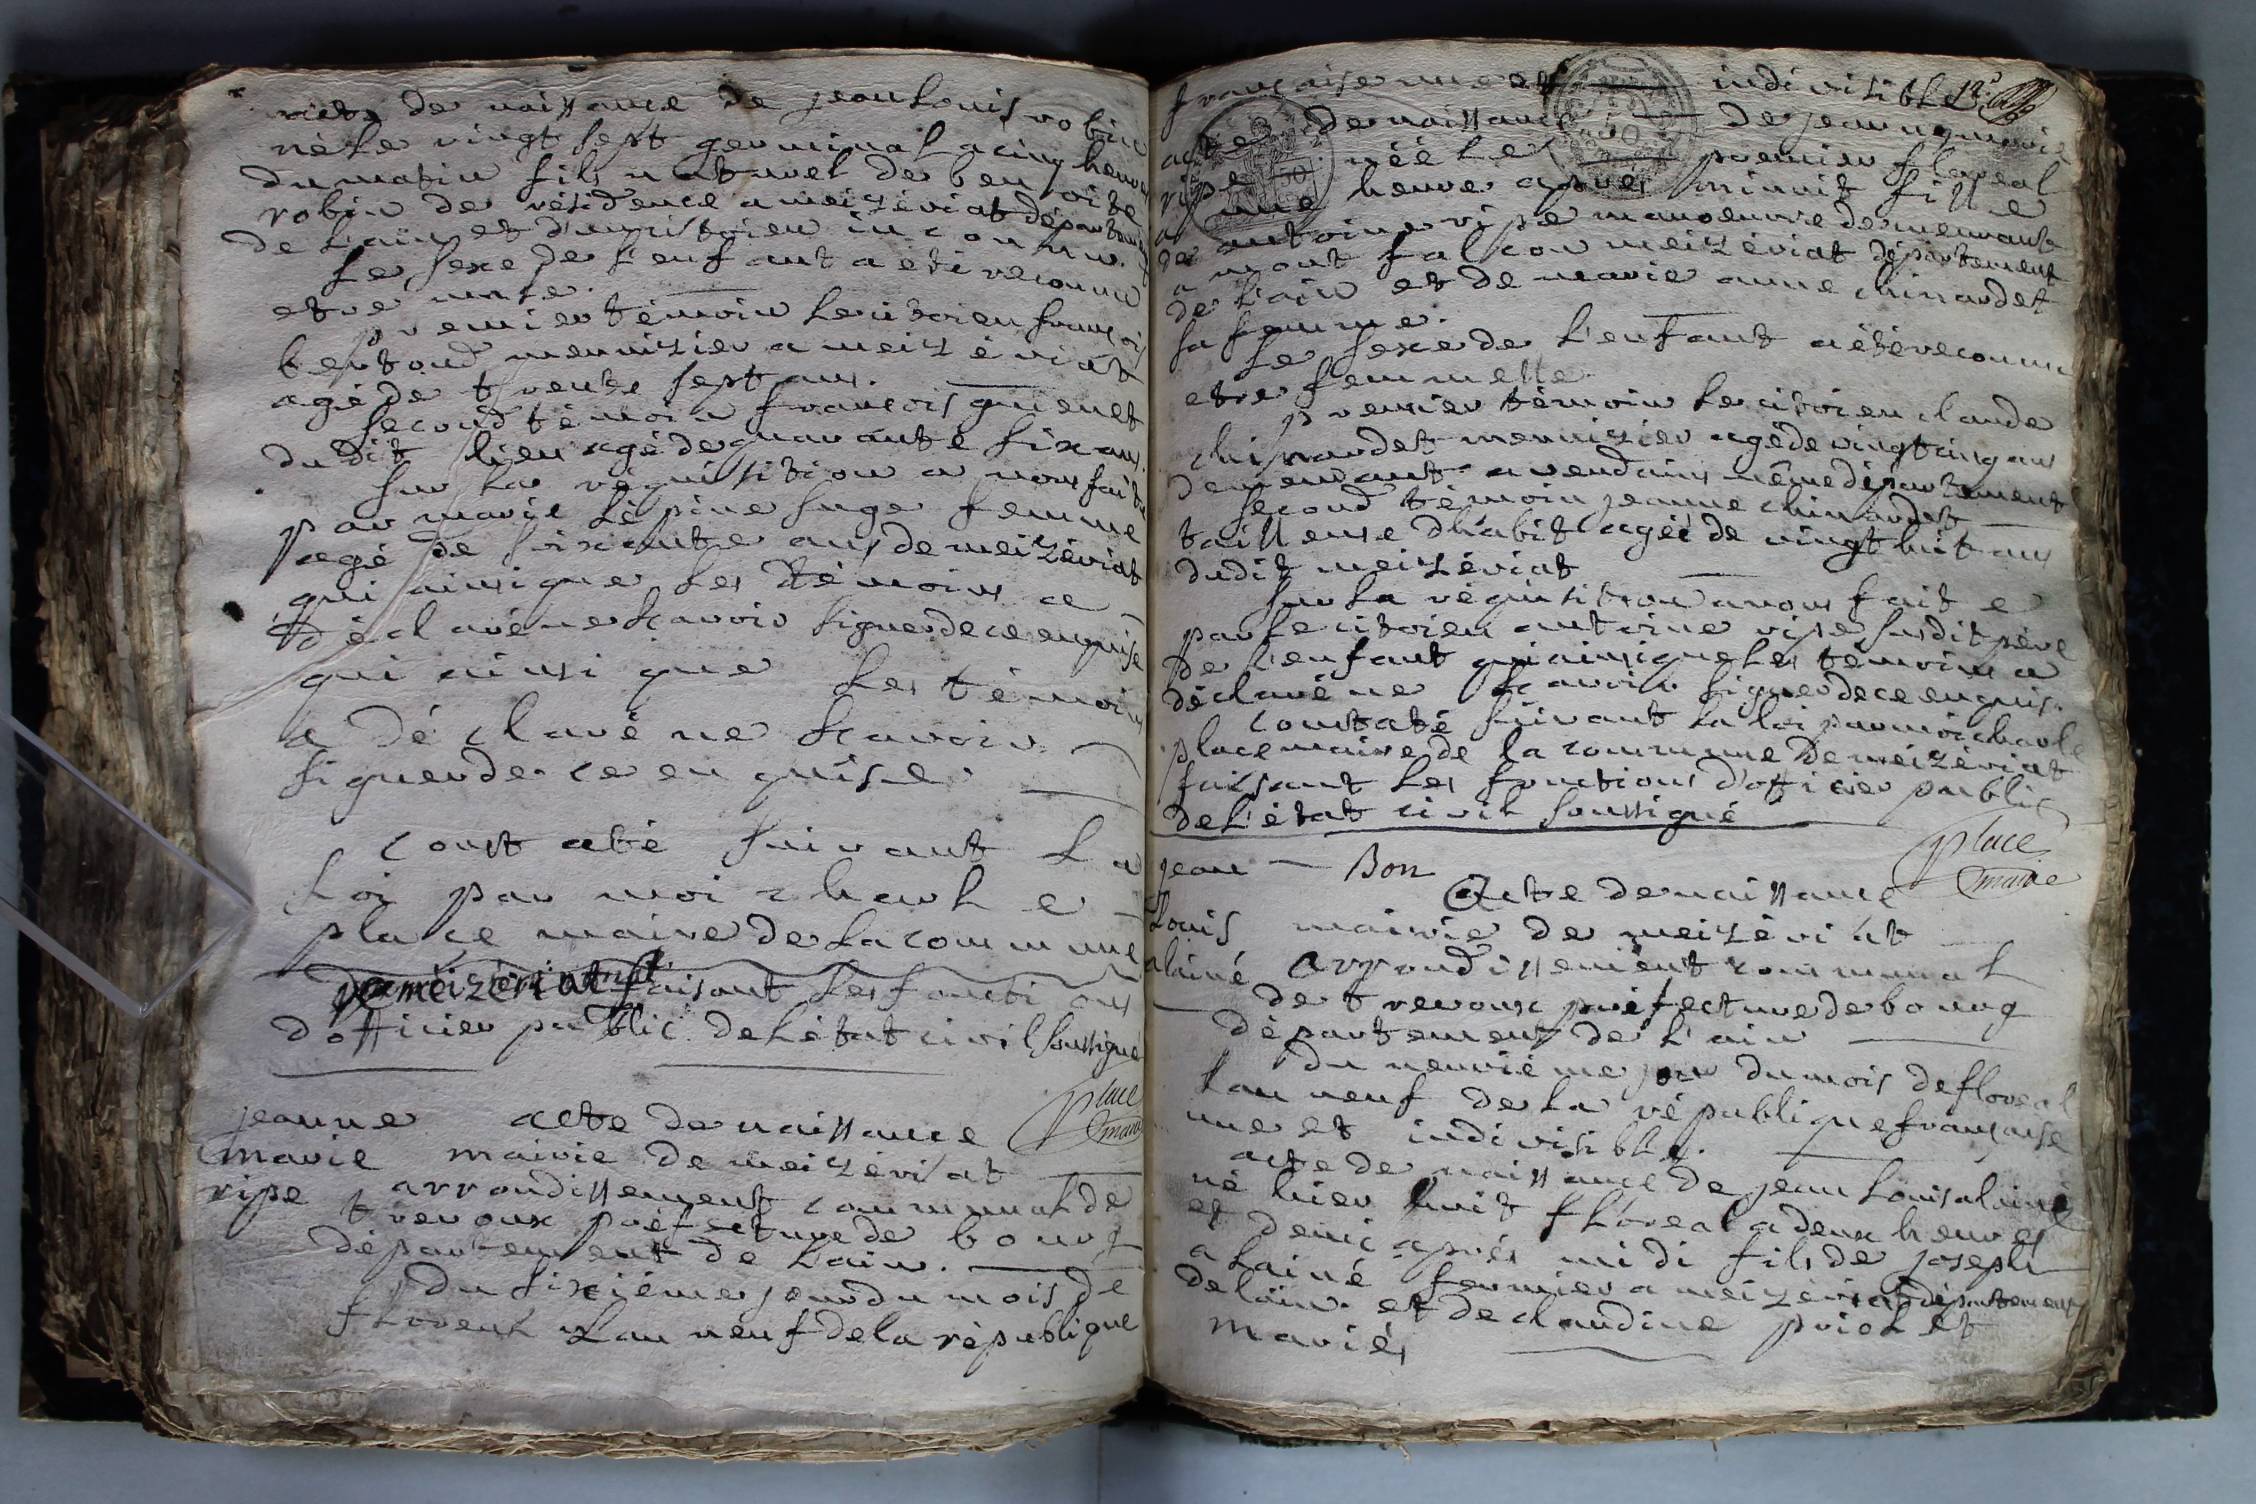 acte de naissance de jean Louis robin
né Le vingt sept germinal a cinq heures
du matin fils naturel de benoite
robin de résidence a meizériat départemen
de L'ain et d'un citoien inconnu.
Le sexe de L'enfant a été reconnu
etre male.
premier témoin Le citoien françois
bertoud menuizier a meizériat
agé de trente sept ans.
second témoin francois guenet
du dit lieu agé de quarante six ans.
sur La réquisition a nous faite
par marie Lépine sage femme
agé de sixante ans de meizériat
qui ainsi que Les témoins a
déclaré ne scavoir signer de ce enquise
qui ainsi que Les témoins
a déclaré ne scavoir
signer de ce enquise
constaté suivant La
Loi par moi charle
place maire de La commune
de meizériat faisant Les fonctions
d'officier public de L'état civil soussigné
place
maire
jeanne acte de naissance
marie mairie de meizériat
ripe arrondissement communal de
trevoux préfecture de bourg
département de L'ain.
du sixième jour du mois de
floreal L'an neuf de la république
française une et indivisible 12
acte de naissance de jeanne marie
ripe néé Le premier floreal
a une heure aprés minuit fille
de antoine ripe manoeuvre demeurant
a mont falcon meizériat département
de L'ain et de marie anne chinardet
sa femme.
Le sexe de L'enfant a été reconnu
etre femmelle.
premier témoin Le citoien claude
chinardet menuizier agé de vingt cinq ans
demeurant a vendains même département
second témoin jeanne chinardet
tailleuse d'habit agéé de vingt huit ans
du dit meizériat
sur La réquisition a nous faite
par Le citoien antoine ripe susdit père
de L'enfant qui ainsi que Les témoins a
déclaré ne scavoir signer de ce enquis.
constaté suivant La loi par moi charle
place maire de la commune de meizériat
faisant Les fonctions d'officier public
de L'état civil soussigné
place
maire
jean Bon
Acte de naissance
Louis mairie de meizériat
alainé Arrondissement communal
de trevoux préfecture de bourg
département de L'ain
du neuvième jour du mois de floreal
L'an neuf de La république française
une et indivisible.
acte de naissance de jean Louis alainé
né hier huit floreal a deux heures
et demie aprés midi fils de joseph
alainé fermier a meizériat département
de L'ain et de claudine priolet
mariés